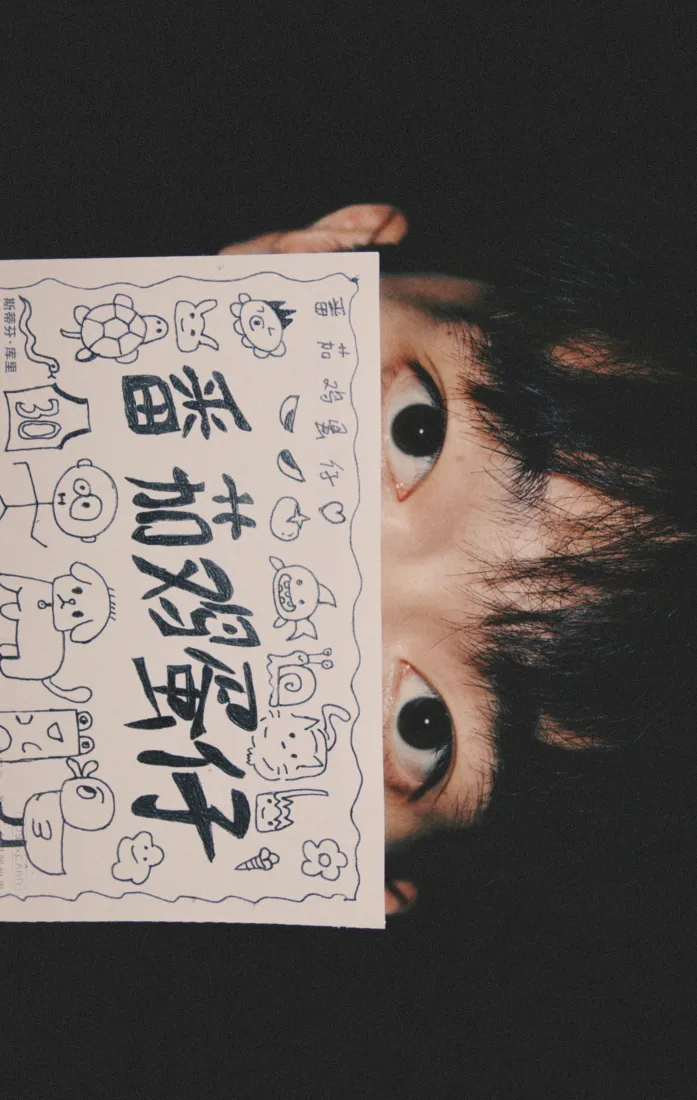 番茄鸡蛋仔
番茄鸡蛋仔
30
斯蒂芬·库里